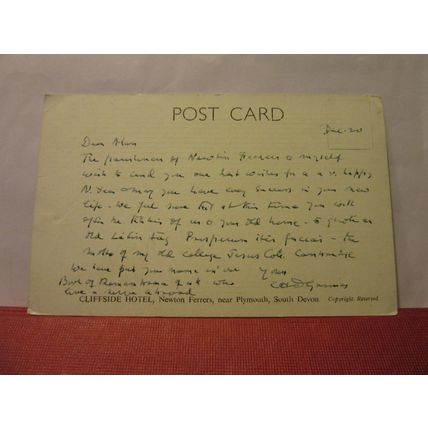 POST CARD
Dec. 20
Dear Alan
The parishioners of Newton Ferrers & myself
wish to send you our best wishes for a v. happy
N. Year & may you have every success in your new
life. We feel sure that at this time you will
often be thinking of us & your old home. to quote an
old Latin tag Prosperum iter facias - the
motto of my old college Jesus Coll. Cambridge
We have put your name in our Yours
Book of Remembrance of all who
have a serve abroad
CLIFFSIDE HOTEL, Newton Ferrers, near Plymouth, South Devon. Copyright Reserved